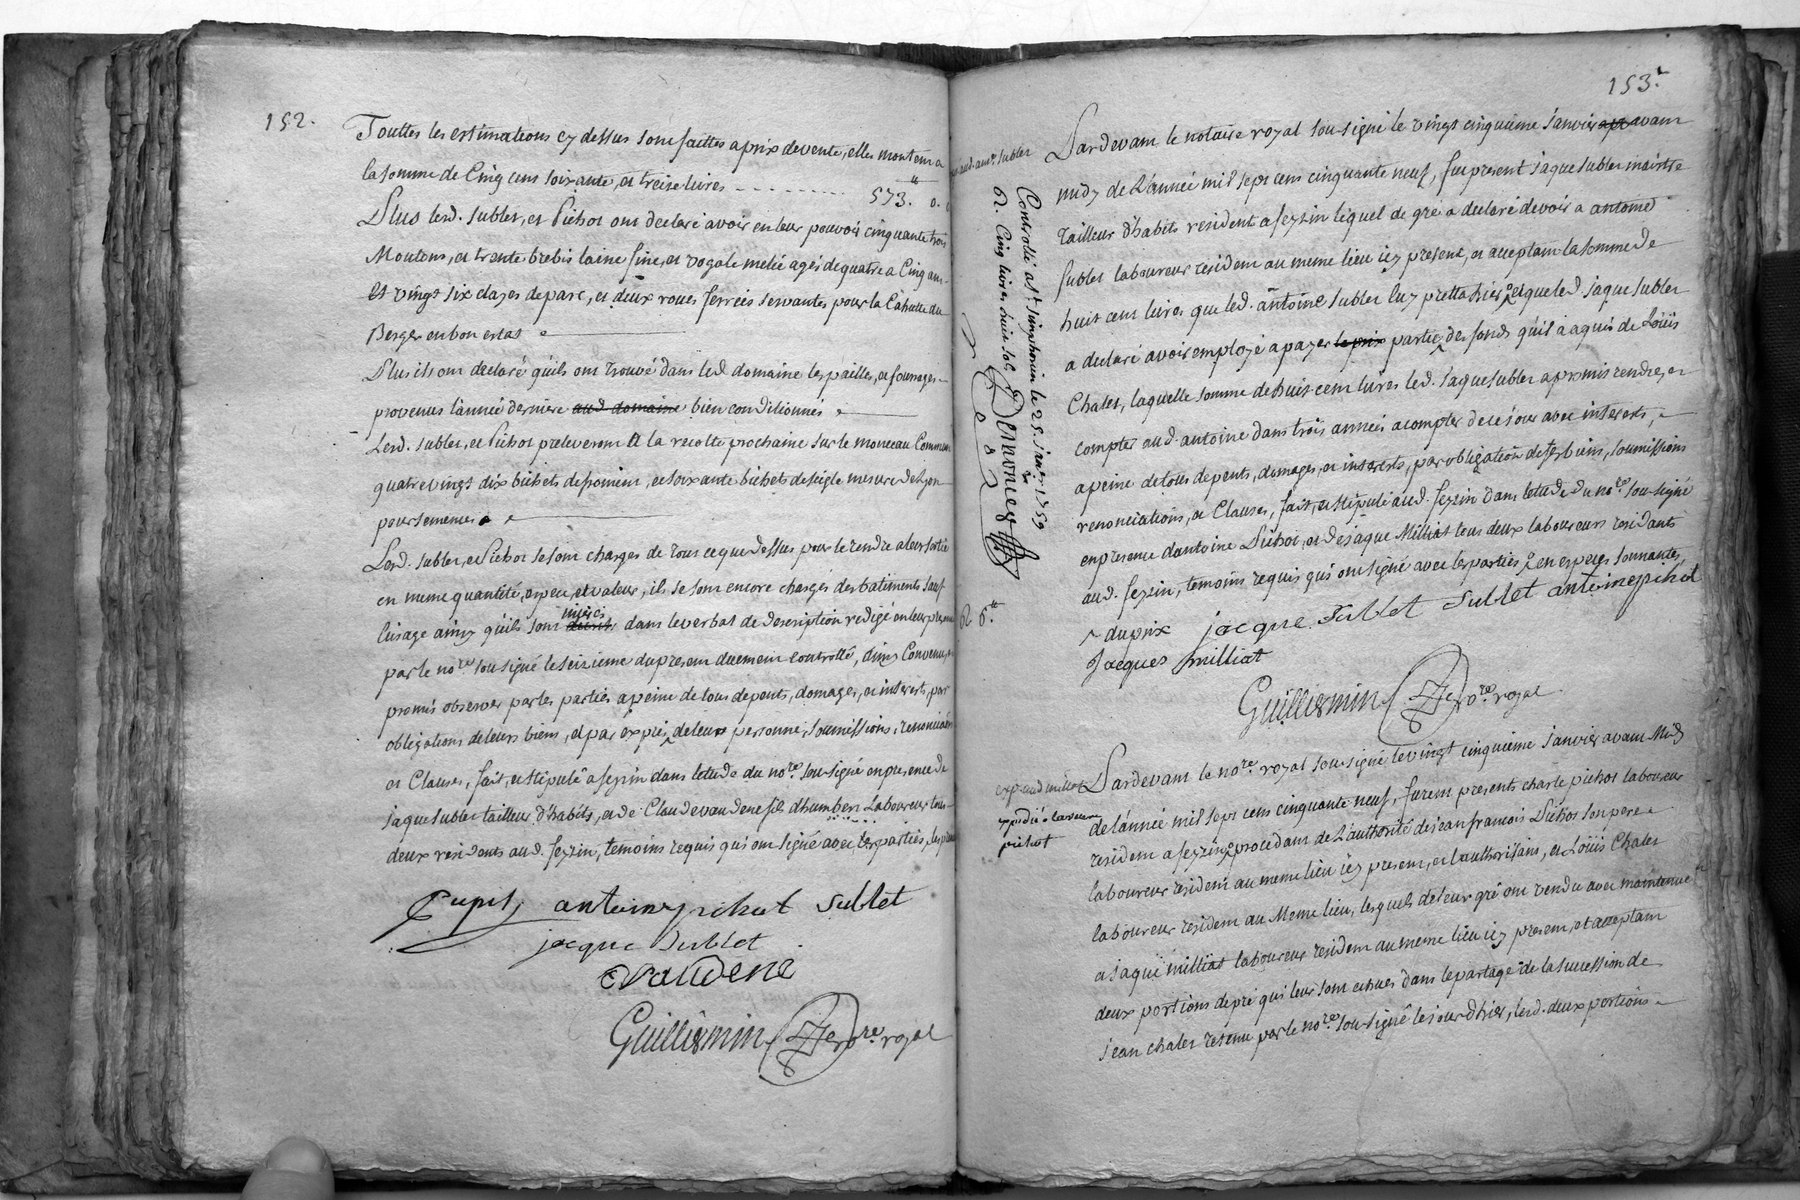 152.
Touttes les estimations cy dessus sont faittes a prix de vente, elles montent a
la somme de Cinq cens soixante, et treise livres - - - - - - - - - 573.ᵗᵗ 0. 0
Plus lesd. sublet, et Pichot ont declaré avoir en leur pouvoir cinquante trois
Moutons, et trente brebis laine fine, et vogale melée agés de quatre a Cinq ans
Et vingt six clayes de parc, et deux roues ferrées servantes, pour la Cahutte du
Berger en bon estat
Plus ils ont declaré qu'ils ont trouvé dans led. domaine les pailles, et fourrages
provenus l'année derniere aud. domaine bien conditionnés
Lesd. sublet, et Pichot preleveront a la recolte prochaine sur le monceau Commun
quatre vingt dix bichets de froment, et soixante bichets de seigle mesure de Lyon
pour semences
Lesd. sublet, et Pichot se sont chargés de tous ce que dessus pour le rendre a leur sortie
en meme quantité, espece, et valeur, ils se sont encore chargés des batiments sauf
l'usage ainsy qu'ils sont inserés dans le verbal de description redigé en leur presence
par le noʳᵉ sousigné le seizieme du present duement controllé, ainsy Convenu, et
promis observer par les parties a peine de tous depents, domages, et interests, par
obligations de leurs biens, et par exprés de leurs personne, soumissions, renonciations
et Clauses, fait, et stipulé a feyzin dans letude du noʳᵉ. sousigné en presence de
jaque sublet tailleur d'habits, et de Claude vaudene fils d'humbert Laboureur tous
deux residents aud. feyzin, temoins requis qui ont signé avec les parties,
Pupil, antoine pichot Sublet
jacque Sublet
C Vaudene
Guillermin noʳᵉ. royal
153.
Pardevant le notaire royal sousigné le vingt cinquieme janvier apr avant
midy de L'année mil sept cens cinquante neuf, fut present jaque sublet maistre
tailleur d'habits resident a feyzin lequel de gré a declaré devoir a antoine
sublet laboureur resident au meme lieu icy present, et acceptant la somme de
huit cent livres que led. antoine sublet luy pretta hier, et que led. jaque sublet
a declaré avoir employé a payer le prix partie ^ des fonds qu'il a aquis de Loüis
Chalet, laquelle somme de huit cent livres led. jaque sublet a promis rendre, et
compter aud. antoine dans trois années a compter de ce jour avec interests,
a peine de tous depents, domages, et interests, par obligation de ses biens, soumissions
renonciations, et Clauses, fait, et stipulé aud. feyzin dans letude du noʳᵉ sousigné
en presence d'antoine Pichot, et de jaque Milliat tous deux laboureurs residents
aud. feyzin, temoins requis qui ont signé avec les parties en especes sonnantes,
^ du prix jacque Sublet Sublet antoine pichot
Jacques milliat
Guillermin noʳᵉ royal
Controllé a Sᵗ. simphorien le 25. janᵉʳ 1759
62. Cinq livres huit sols
Pardevant le noʳᵉ. royal sousigné le vingt cinquieme janvier avant Midy
de l'année mil sept cens cinquante neuf, furent presents charle pichot laboureur
resident a feyzin procedant de L'authorité de jean francois Pichot son pere
laboureur resident au meme lieu icy present, et l'authorisant, et Loüis Chalet
laboureur resident au Meme lieu, lesquels de leur gré ont vendu avec maintenue
a jaque milliat laboureur resident au meme lieu icy present, et acceptant
deux portions de pré qui leur sont echues dans le partage de la succession de
jean chalet retenu par le noʳᵉ sousigné le jour d'hier, lesd. deux portions